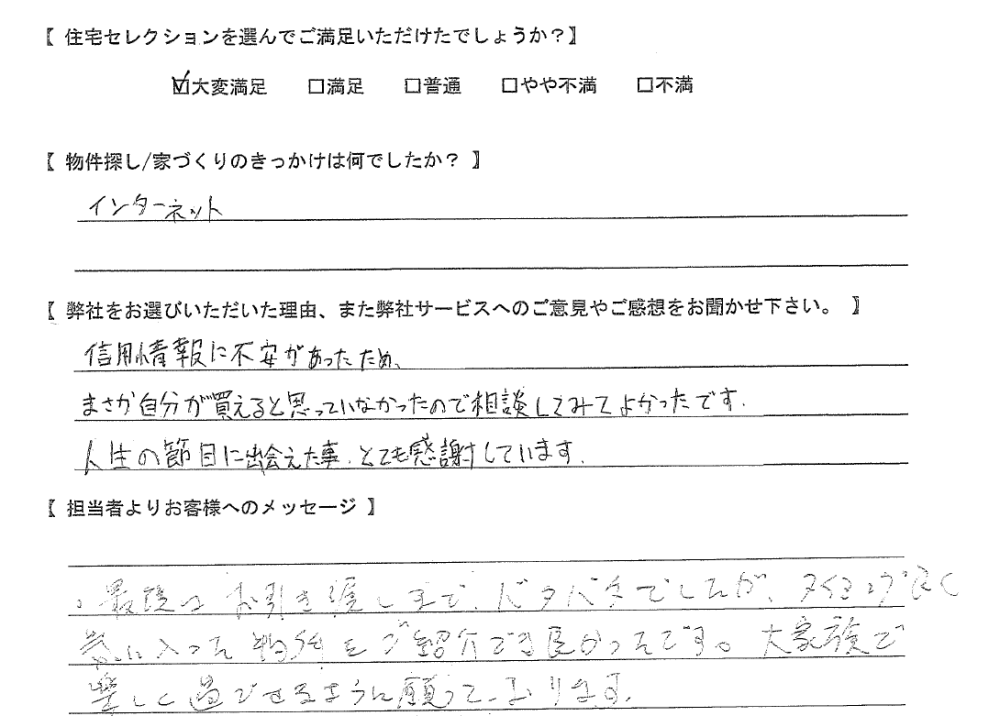 【 住宅セレクションを選んでご満足いただけたでしょうか？】
☑大変満足 □満足 □普通 □やや不満 □不満
【 物件探し/家づくりのきっかけは何でしたか？ 】
インターネット
【 弊社をお選びいただいた理由、また弊社サービスへのご意見やご感想をお聞かせ下さい。 】
信用情報に不安があったため、
まさか自分が買えると思っていなかったので相談してみてよかったです.
人生の節目に出会えた事、とても感謝しています.
【 担当者よりお客様へのメッセージ 】
最後はお引き渡しまで、バタバタでしたが、タイミング良く
気に入った物件をご紹介でき良かったです。大家族で
楽しく過ごせるように願っております.